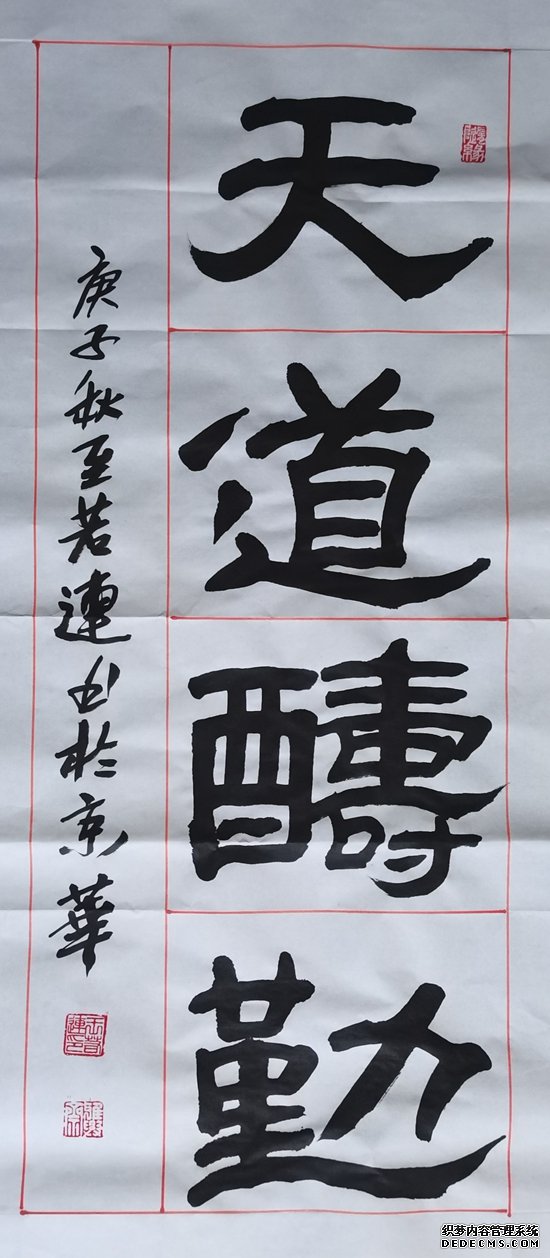 天道醻勤
庚子秋至若連书於京華
织梦内容管理系统
DEDECMS.COM